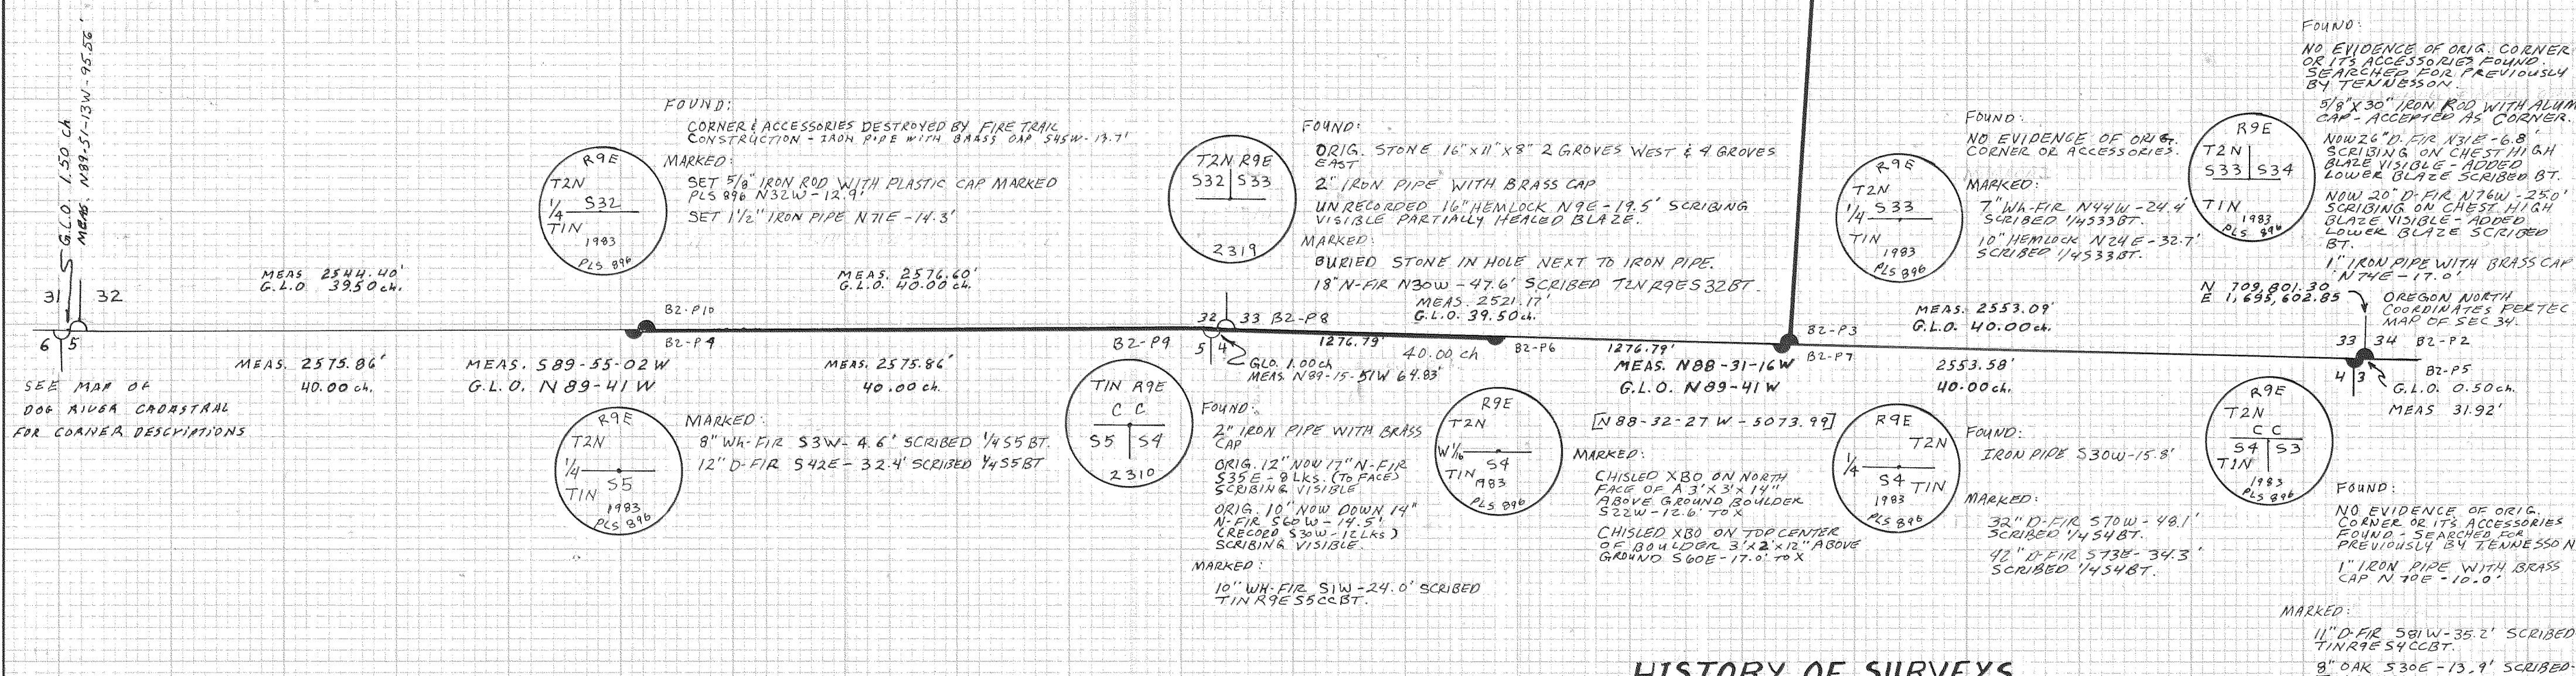 G.L.O. 1.50 ch
MEAS. N89-51-13W-95.56'
31
32
6
5
SEE MAP OF
DOG RIVER CADASTRAL
FOR CORNER DESCRIPTIONS
MEAS 2544.40'
G.L.O 39.50 ch.
MEAS. 2575.86'
40.00 ch.
MEAS. S89-55-02 W
G.L.O. N 89-41 W
R9E
T2N
1/4 S32
T1N
1983
PLS 896
FOUND:
CORNER & ACCESSORIES DESTROYED BY FIRE TRAIL
CONSTRUCTION - IRON PIPE WITH BRASS CAP S45W-13.7'
MARKED:
SET 5/8" IRON ROD WITH PLASTIC CAP MARKED
PLS 896 N32W-12.9'
SET 1 1/2" IRON PIPE N71E-14.3'
MEAS. 2576.60'
G.L.O. 40.00 ch.
B2-P10
B2-P4
MEAS. 2575.86'
40.00 ch.
R9E
T2N
1/4
S5
T1N
1983
PLS 896
MARKED:
8" WH-FIR S3W-4.6' SCRIBED 1/4 S5 BT.
12" D-FIR S42E-32.4' SCRIBED 1/4 S5BT
T2N R9E
S32 S33
2319
FOUND:
ORIG. STONE 16"x11"x8" 2 GROVES WEST & 4 GROVES
EAST
2" IRON PIPE WITH BRASS CAP
UNRECORDED 16" HEMLOCK N9E-19.5' SCRIBING
VISIBLE PARTIALLY HEALED BLAZE.
MARKED:
BURIED STONE IN HOLE NEXT TO IRON PIPE.
18" N-FIR N30W-47.6' SCRIBED T2NR9ES32BT.
MEAS. 2521.17'
G.L.O. 39.50 ch.
32
33 B2-P8
B2-P9
5
4
GLO. 1.00 ch
MEAS. N89-15-51W 64.83'
1276.79'
40.00 ch
B2-P6
1276.79'
T1N R9E
C C
S5 S4
2310
FOUND:
2" IRON PIPE WITH BRASS
CAP
ORIG. 12" NOW 17" N-FIR
S35E-8 LKS. (TO FACE)
SCRIBING VISIBLE
ORIG. 10" NOW DOWN 14"
N-FIR S60W-14.5'
(RECORD S30W-12 LKS)
SCRIBING VISIBLE.
MARKED:
10" WH-FIR S1W-24.0' SCRIBED
T1NR9ES5CCBT.
R9E
T2N
W1/16
S4
T1N
1983
PLS 896
MEAS. N88-31-16W
G.L.O. N89-41 W
[N88-32-27 W-5073.99]
MARKED:
CHISLED XBO ON NORTH
FACE OF A 3'x3'x14"
ABOVE GROUND BOULDER
S22W-12.6' TO X
CHISLED XBO ON TOP CENTER
OF BOULDER 3'x2'x12" ABOVE
GROUND S60E-17.0' TO X
R9E
T2N
1/4 S33
T1N
1983
PLS 896
FOUND:
NO EVIDENCE OF ORIG.
CORNER OR ACCESSORIES.
MARKED:
7" WH-FIR N44W-24.4'
SCRIBED 1/4S33BT.
10" HEMLOCK N24E-32.7'
SCRIBED 1/4S33BT.
B2-P3
B2-P7
MEAS. 2553.09'
G.L.O. 40.00 ch.
2553.58'
40.00 ch.
R9E
T2N
1/4
S4
T1N
1983
PLS 896
FOUND:
IRON PIPE S30W-15.8'
MARKED:
32" D-FIR S70W-48.1'
SCRIBED 1/4S4BT.
42" D-FIR S73E-34.3'
SCRIBED 1/4S4BT.
R9E
T2N
S33 S34
T1N
1983
PLS 896
FOUND:
NO EVIDENCE OF ORIG. CORNER
OR ITS ACCESSORIES FOUND.
SEARCHED FOR PREVIOUSLY
BY TENNESSON.
5/8"x30" IRON ROD WITH ALUM
CAP - ACCEPTED AS CORNER.
NOW 26" D-FIR N31E-6.8'
SCRIBING ON CHEST HIGH
BLAZE VISIBLE - ADDED
LOWER BLAZE SCRIBED BT.
NOW 20" D-FIR N76W-25.0'
SCRIBING ON CHEST HIGH
BLAZE VISIBLE - ADDED
LOWER BLAZE SCRIBED
BT.
1" IRON PIPE WITH BRASS CAP
N74E-17.0'
N 709,801.30
E 1,695,602.85
OREGON NORTH
COORDINATES PER TEC
MAP OF SEC 34.
33
34 B2-P2
B2-P5
4
3
G.L.O. 0.50 ch.
MEAS 31.92'
R9E
T2N
C C
S4 S3
T1N
1983
PLS 896
FOUND:
NO EVIDENCE OF ORIG.
CORNER OR ITS ACCESSORIES
FOUND - SEARCHED FOR
PREVIOUSLY BY TENNESSON
1" IRON PIPE WITH BRASS
CAP N 70E-10.0'
MARKED:
11" D-FIR S81W-35.2' SCRIBED
T1NR9ES4CCBT.
8" OAK S30E-13.9' SCRIBED-
HISTORY OF SURVEYS